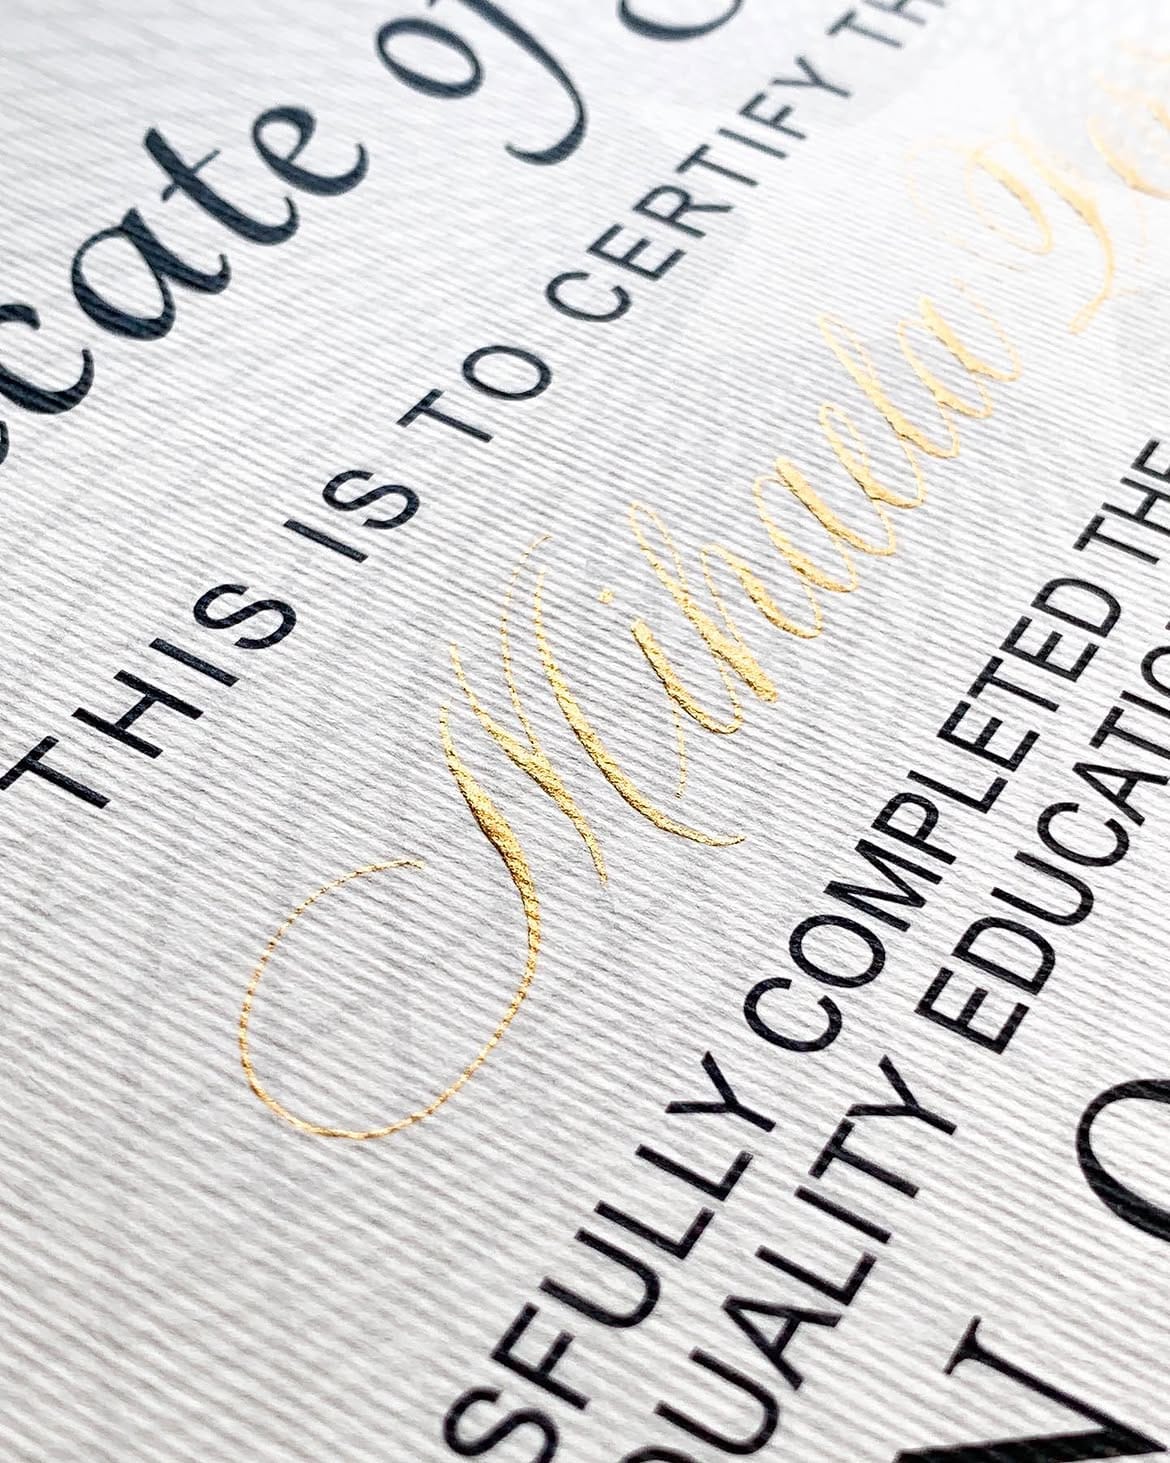 cate of
THIS IS TO CERTIFY TH
Mihaela
SFULLY COMPLETED THE
QUALITY EDUCATIO
N